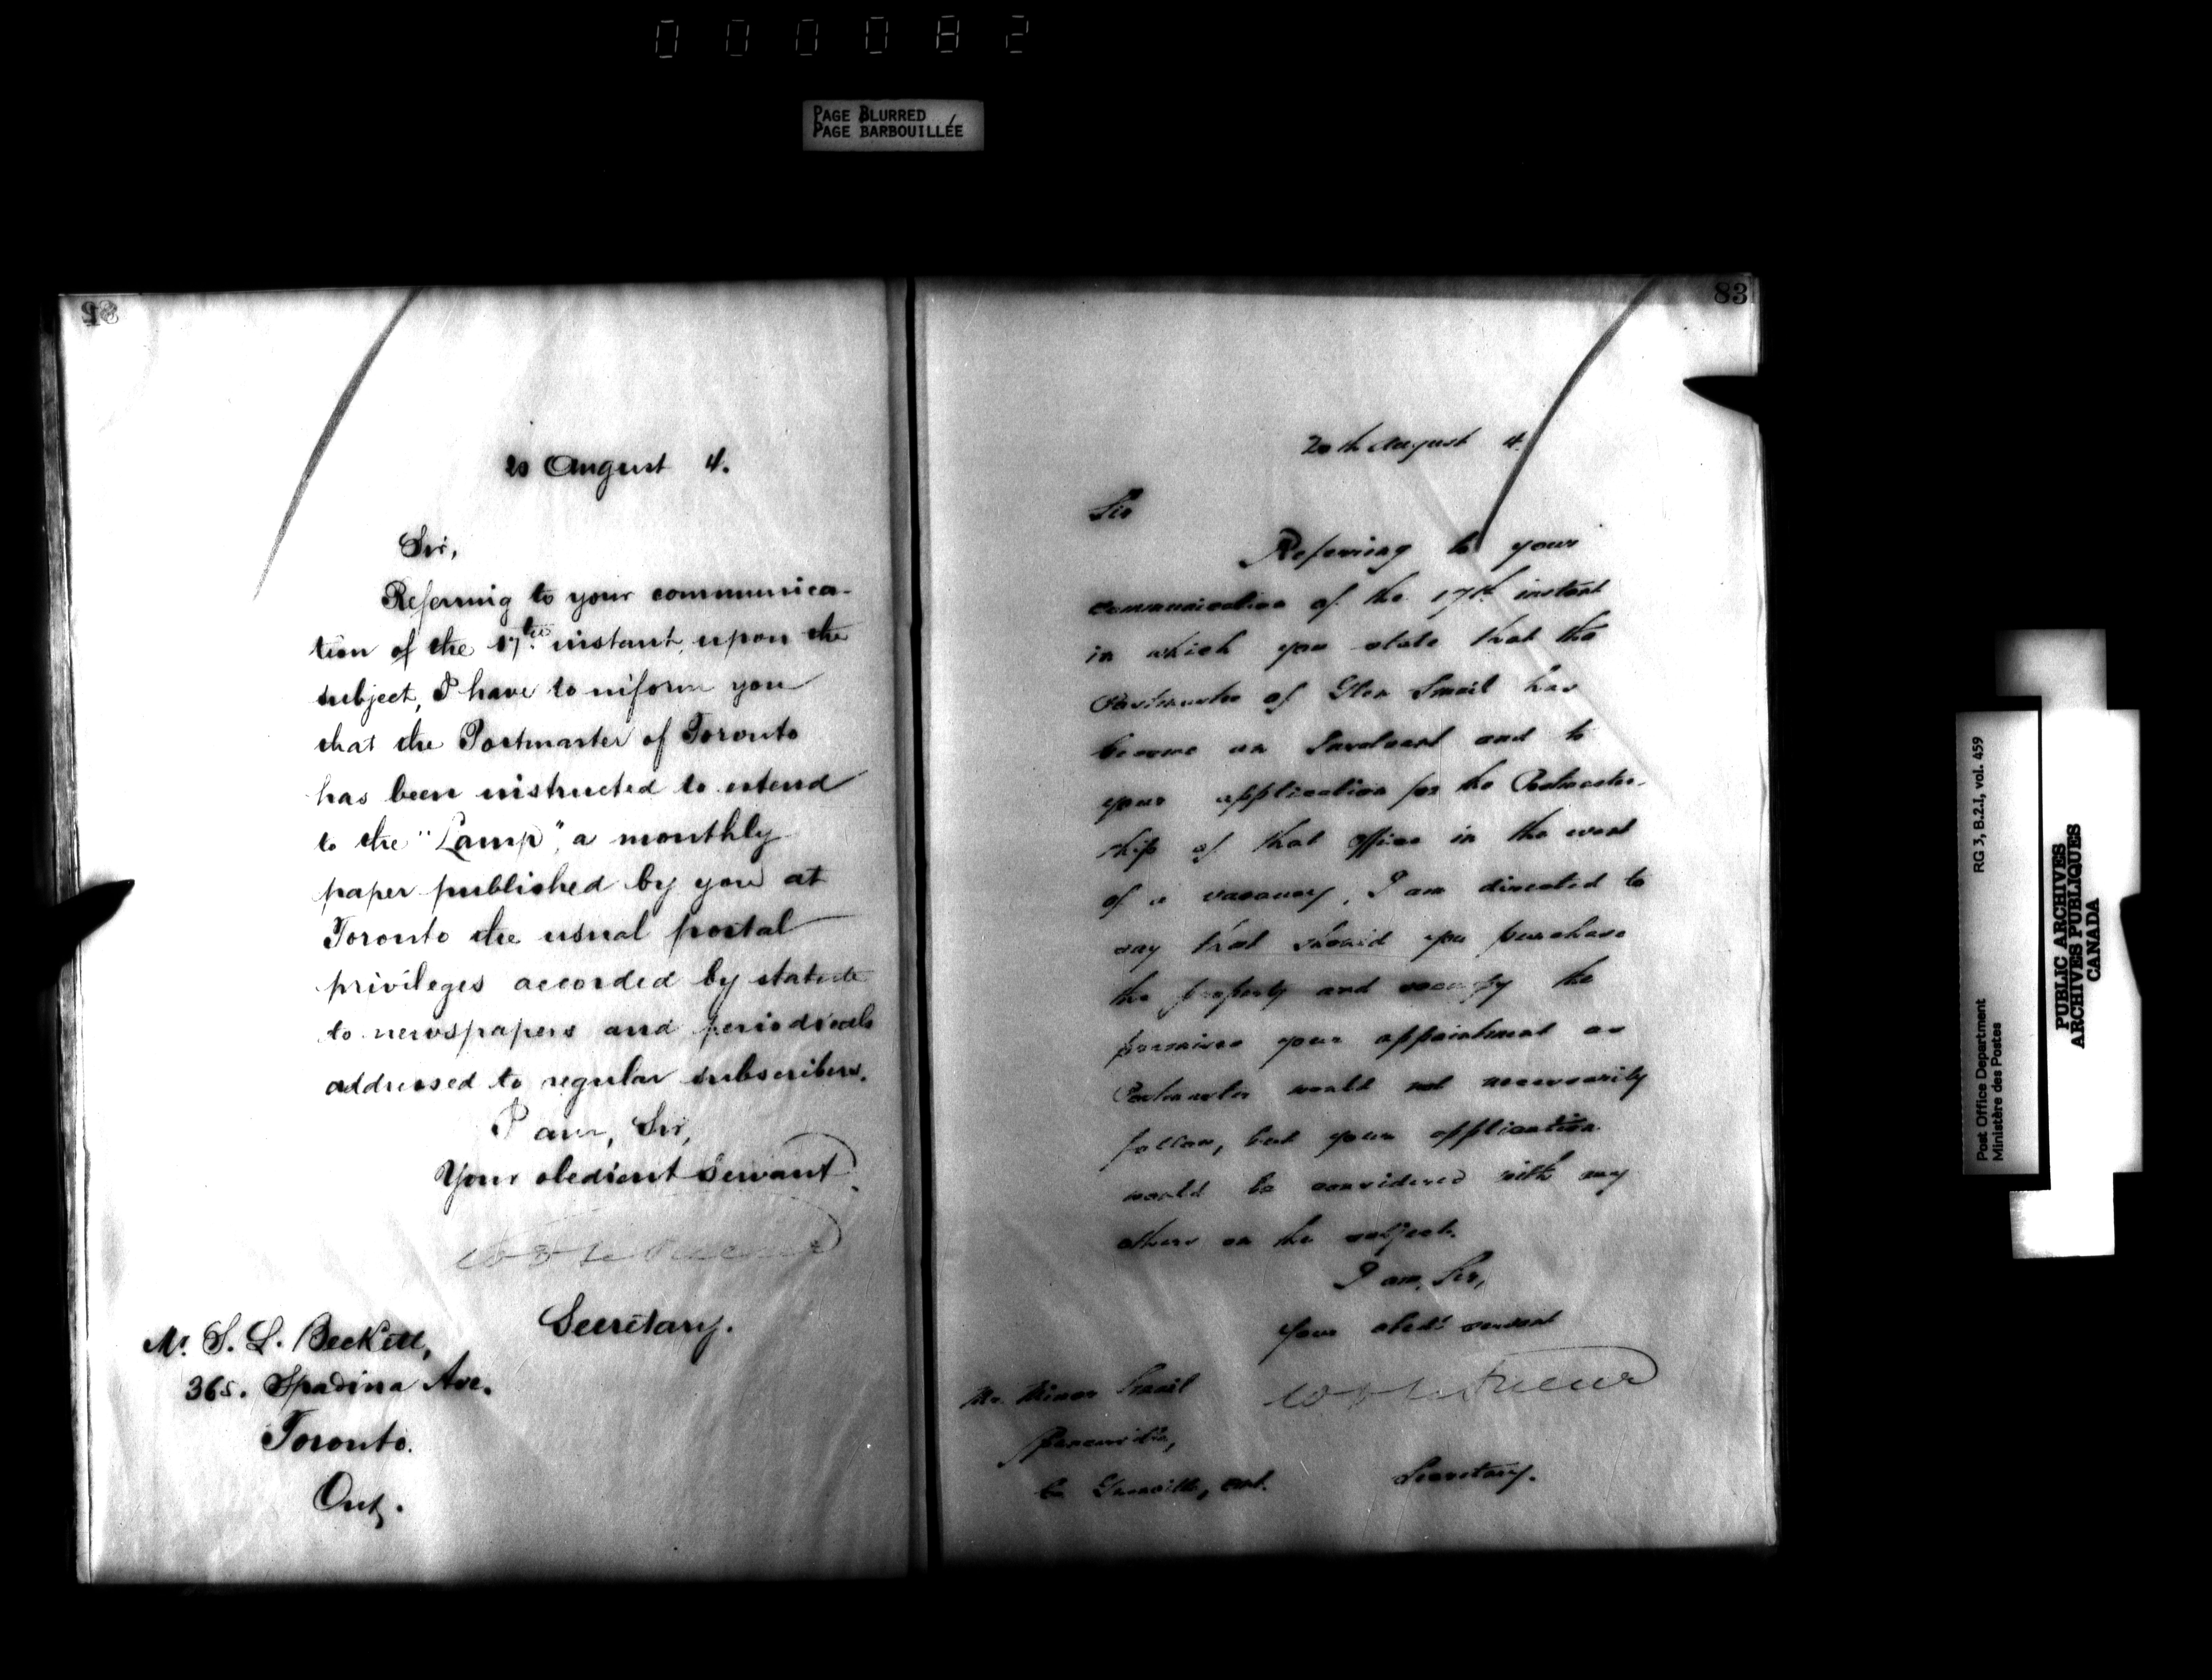 000082
PAGE BLURRED
PAGE BARBOUILLÉE
82
20 August 4.
Sir,
Referring to your communica-
tion of the 17th instant, upon the
subject, I have to inform you
that the Postmaster of Toronto
has been instructed to extend
to the "Lamp", a monthly
paper published by you at
Toronto the usual postal
privileges accorded by statute
to newspapers and periodicals
addressed to regular subscribers.
I am, Sir,
Your obedient servant.
Secretary.
Mr. S. L. Beckett,
365. Spadina Ave.
Toronto.
Ont.
83
20th August 4.
Sir
Referring to your
communication of the 17th instant
in which you state that the
Postmaster of Glen Smail has
become an Insolvent and to
your application for the Postmaster-
ship of that office in the event
of a vacancy, I am directed to
say that should you purchase
the property and occupy the
premises your appointment as
Postmaster would not necessarily
follow, but your application
would be considered with any
others on the subject.
I am, Sir,
Your obedt servant
Mr. Smail
Spencerville,
Co Grenville, Ont.
Secretary.
Post Office Department
Ministère des Postes
RG 3, B.2.I, vol. 459
PUBLIC ARCHIVES
ARCHIVES PUBLIQUES
CANADA